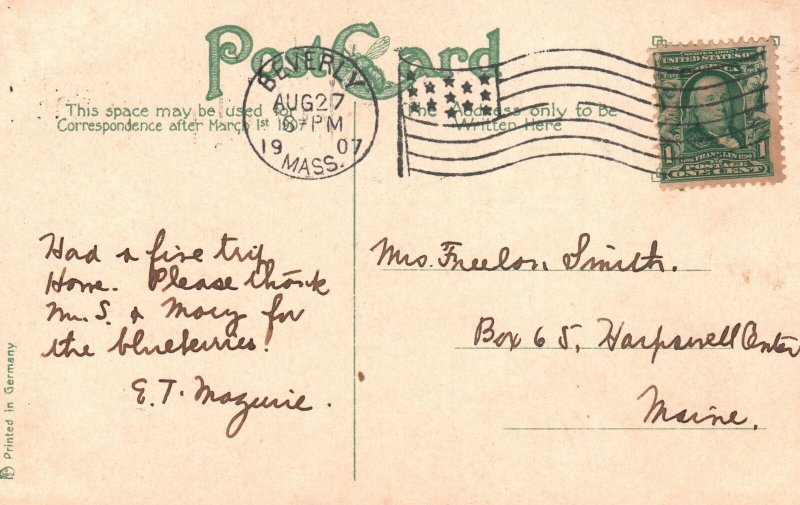 Post Card
BEVERLY
AUG 27
8 PM
19 07
MASS.
SERIES 1902
UNITED STATES OF AMERICA
FRANKLIN
1 1
POSTAGE
ONE CENT
This space may be used for
Correspondence after March 1st 1907
The Address only to be
Written Here
Had a fine trip
Home. Please thank
Mr. S. & Mary for
the blueberries.
E. T. Maguire.
Mrs. Freelon Smith.
Box 65, Harpswell Center
Maine.
Printed in Germany